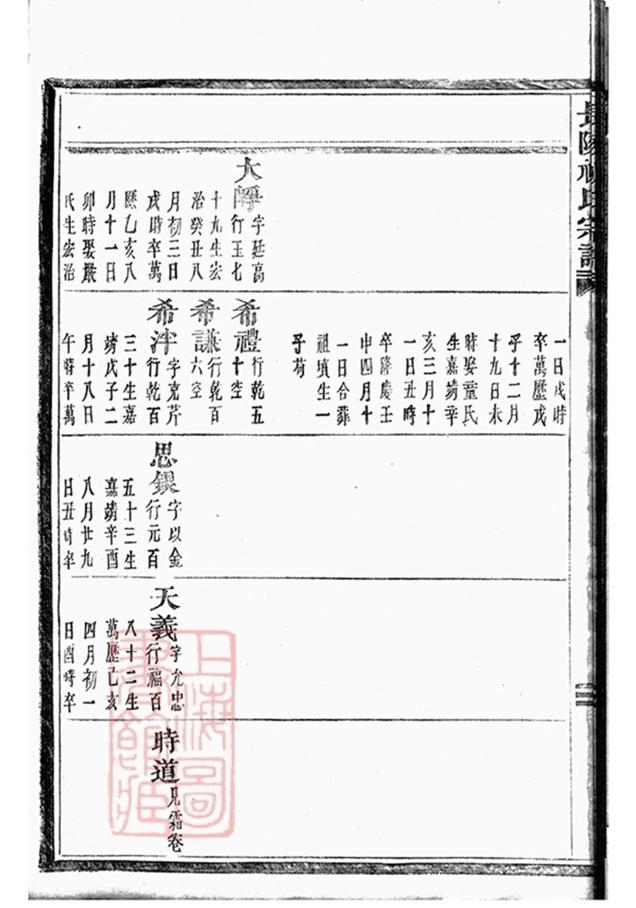 氏宗譜
大
字廷高
行玉七
十九生宏
治癸丑八
月初三日
戌時卒萬
歷乙亥八
月十一日
卯時娶嚴
氏生宏治
一日戌時
卒萬歷戊
子十二月
十九日未
時娶童氏
生嘉靖辛
亥三月十
一日丑時
卒隆慶壬
申四月十
一日合葬
祖墳生一
子苟
希禮
行乾五
十空
希謙
行乾百
六空
希泮
字克芹
行乾百
三十生嘉
靖戊子二
月十八日
午時卒萬
思銀
字以金
行元百
五十三生
嘉靖辛酉
八月廿九
日丑時卒
天義
字允忠
行福百
八十二生
萬歷己亥
四月初一
日酉時卒
時道
見霜卷
二
上海圖
書館藏